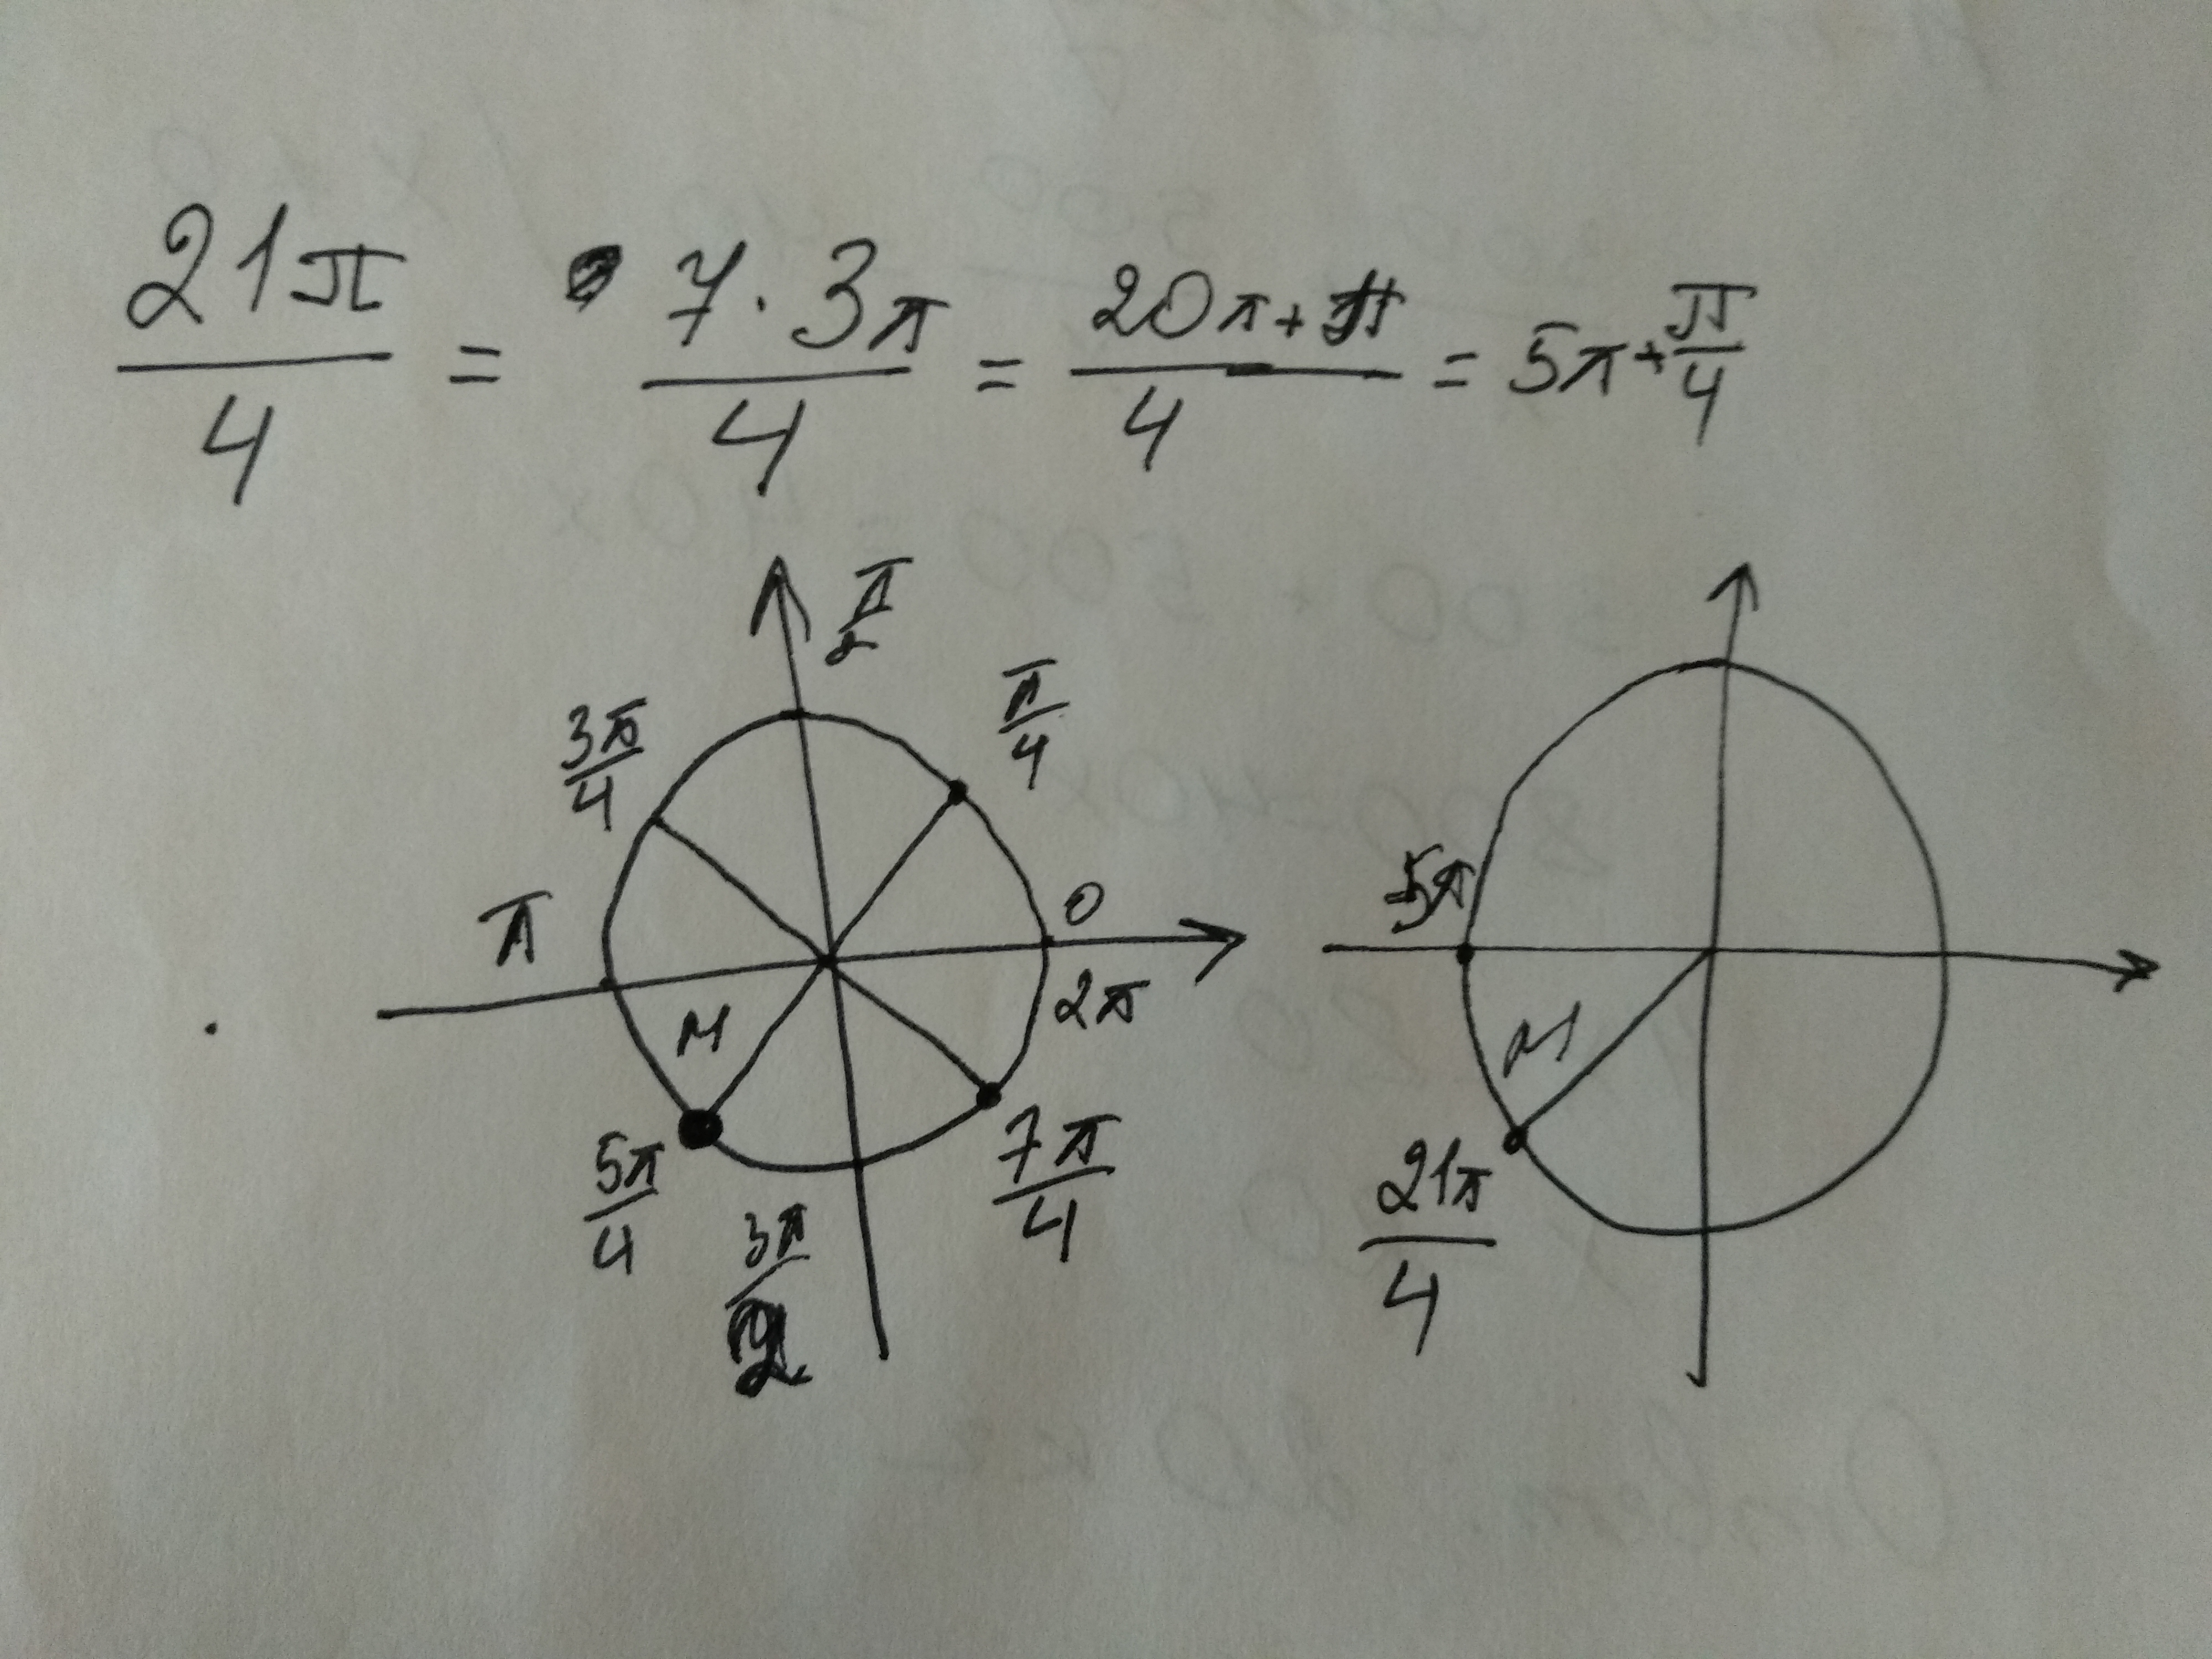 21π/4 = 7·3π/4 = 20π+π/4 = 5π+π/4
π/2
π/4
3π/4
π
0
2π
M
5π/4
3π/2
7π/4
5π
M
21π/4